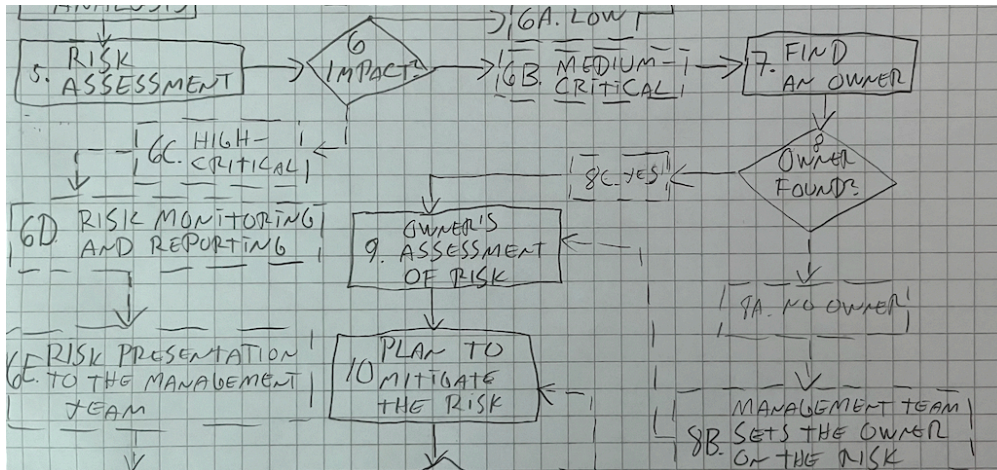 ANALYSIS
5. RISK
ASSESSMENT
6
IMPACT?
6A. LOW
6B. MEDIUM-
CRITICAL
7. FIND
AN OWNER
6C. HIGH-
CRITICAL
8
OWNER
FOUND?
8C. YES
6D. RISK MONITORING
AND REPORTING
9. OWNER'S
ASSESSMENT
OF RISK
8A. NO OWNER
6E. RISK PRESENTATION
TO THE MANAGEMENT
TEAM
10 PLAN TO
MITIGATE
THE RISK
8B. MANAGEMENT TEAM
SETS THE OWNER
ON THE RISK